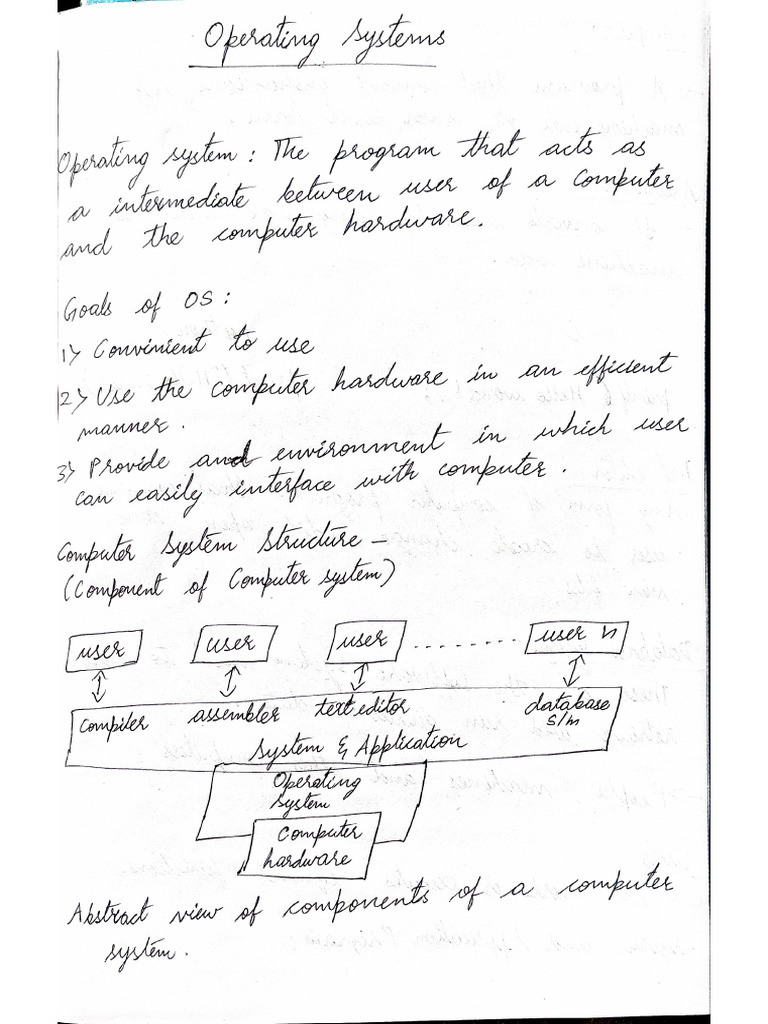 Operating Systems
Operating system : The program that acts as
a intermediate between user of a computer
and the computer hardware.
Goals of OS :
1) Convinient to use
2) Use the computer hardware in an efficient
manner.
3) Provide and environment in which user
can easily interface with computer.
Computer System Structure —
(Component of Computer system)
user user user ........ user n
compiler assembler text editor database
s/m
System & Application
Operating
system
Computer
hardware
Abstract view of components of a computer
system.